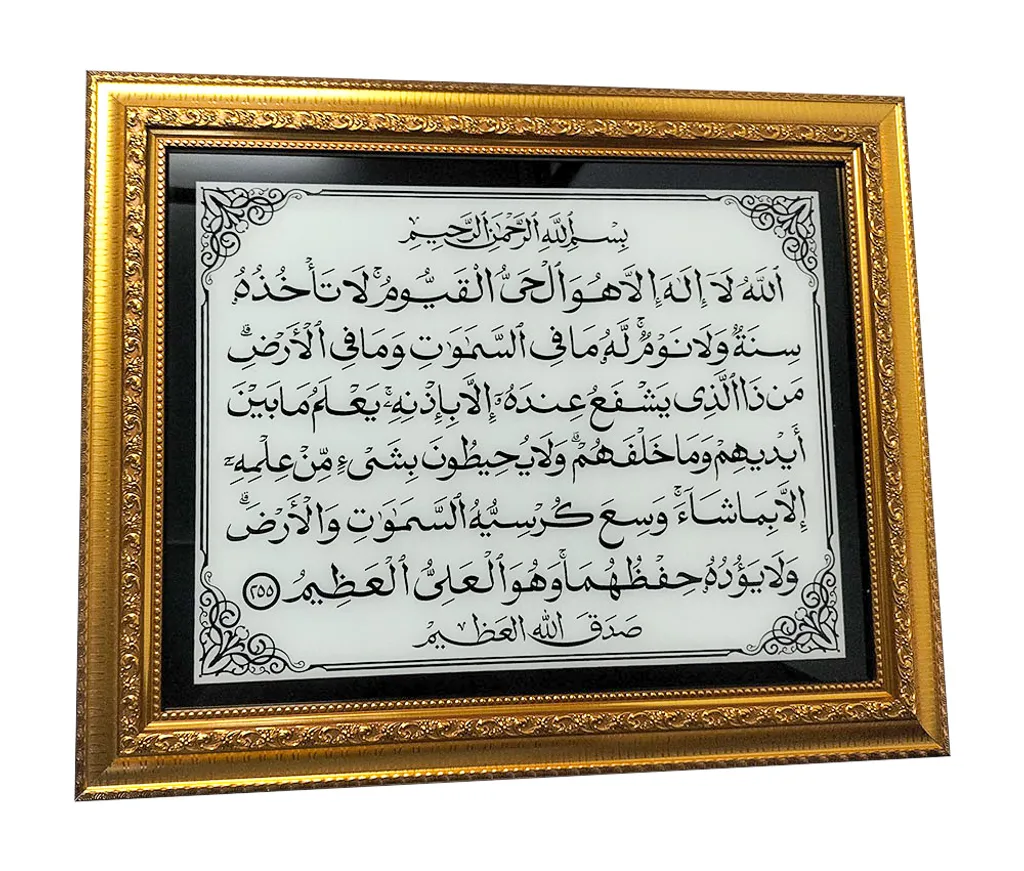 بِسْمِ ٱللَّهِ ٱلرَّحْمَٰنِ ٱلرَّحِيمِ
ٱللَّهُ لَآ إِلَٰهَ إِلَّا هُوَ ٱلْحَىُّ ٱلْقَيُّومُ ۚ لَا تَأْخُذُهُۥ
سِنَةٌ وَلَا نَوْمٌ ۚ لَّهُۥ مَا فِى ٱلسَّمَٰوَٰتِ وَمَا فِى ٱلْأَرْضِ ۗ
مَن ذَا ٱلَّذِى يَشْفَعُ عِندَهُۥٓ إِلَّا بِإِذْنِهِۦ ۚ يَعْلَمُ مَا بَيْنَ
أَيْدِيهِمْ وَمَا خَلْفَهُمْ ۖ وَلَا يُحِيطُونَ بِشَىْءٍ مِّنْ عِلْمِهِۦٓ
إِلَّا بِمَا شَآءَ ۚ وَسِعَ كُرْسِيُّهُ ٱلسَّمَٰوَٰتِ وَٱلْأَرْضَ ۖ
وَلَا يَـُٔودُهُۥ حِفْظُهُمَا ۚ وَهُوَ ٱلْعَلِىُّ ٱلْعَظِيمُ ٢٥٥
صَدَقَ اللهُ العَظِيمْ